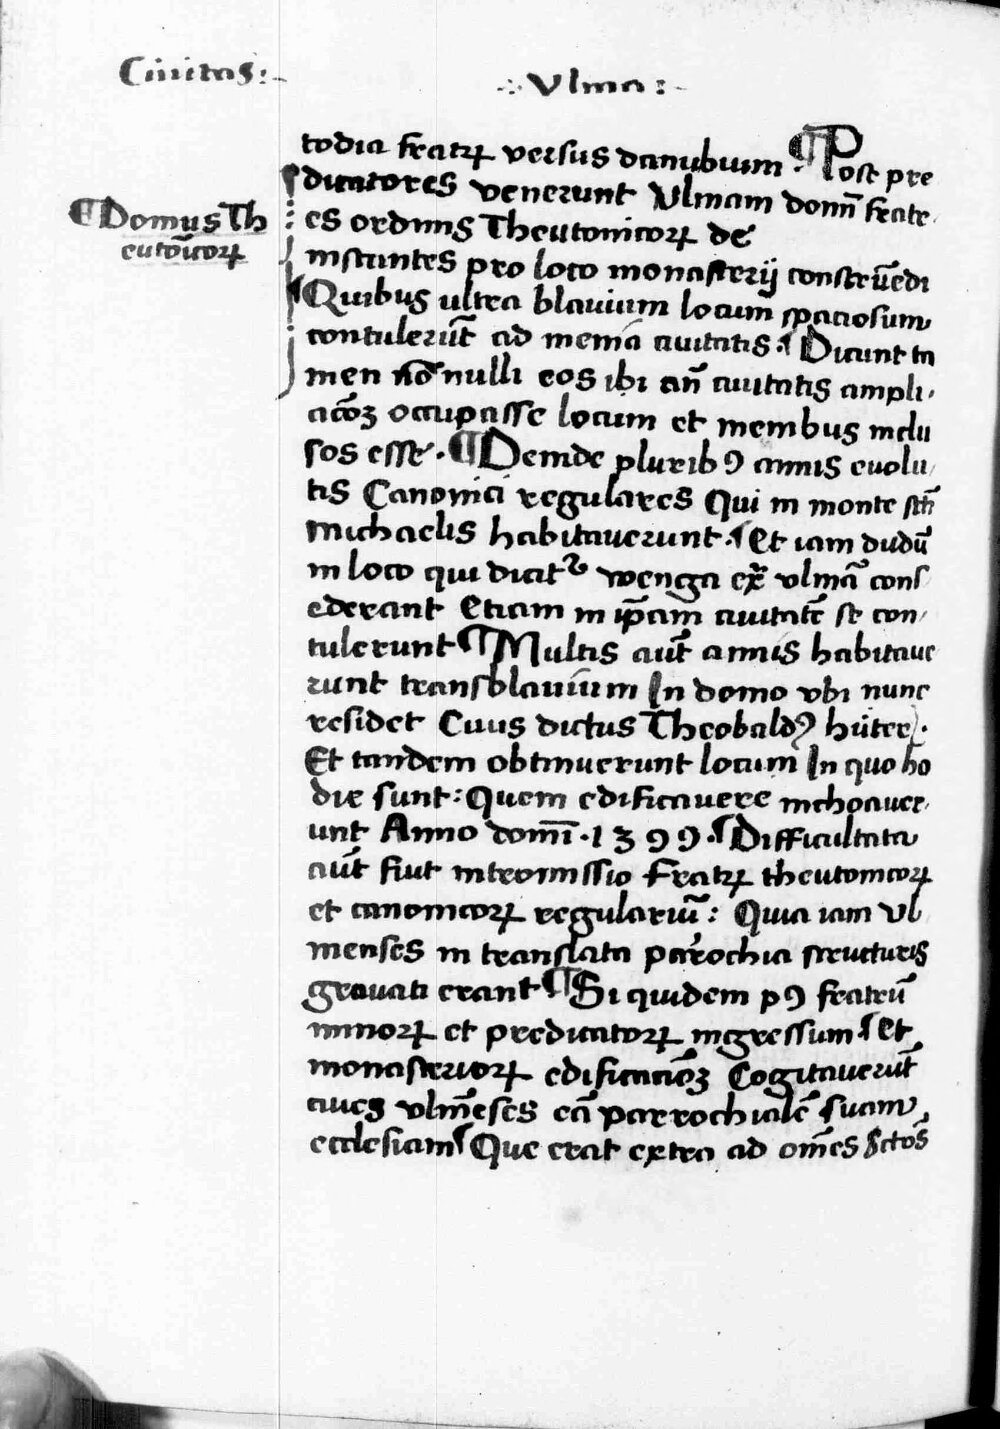 Ciuitas:
Vlma:
¶Domus Th
eutoīcorꝝ
todia fratrꝝ versus danubium. ¶Post pre
dicatores venerunt Vlmam domī fratr
es ordinis Theutonicorꝝ de
instantes pro loco monasterij constrūēdi
Quibus ultra blauium locum spaciosum
contulerūt ad menia ciuitatis. Dicunt ta
men nō nulli eos ibi an̄ ciuitatis ampli
acōꝫ occupasse locum et menibus inclu
sos esse. ¶Deinde pluribꝯ annis euolu
tis Canonici regulares Qui in monte sct̄i
michaelis habitauerunt. Et iam dudū
in loco qui dicitᷣ wenga ext̄ vlmā cons
ederant Etiam in ip̄am ciuitatē se con
tulerunt ¶Multis aūt annis habitaue
runt transblauium In domo vbi nunc
residet Ciuis dictus Theobaldꝯ hüter.
Et tandem obtinuerunt locum In quo ho
die sunt: Quem edificauere inchoauer
unt Anno domī. 1399. Difficultata
aūt fiut intromissio Fratrꝝ theutonicorꝝ
et canonicorꝝ regulariū: Quia iam Vl
menses in translata parochia structuris
grauati erant ¶Si quidem pꝯ fratrū
minorꝝ et predicatorꝝ ingressum Et
monasteriorꝝ edificaciōꝫ Cogitauerūt
ciues vlmēses eā parrochialē suam
ecclesiam Que erat extra ad om̄es Sctōs